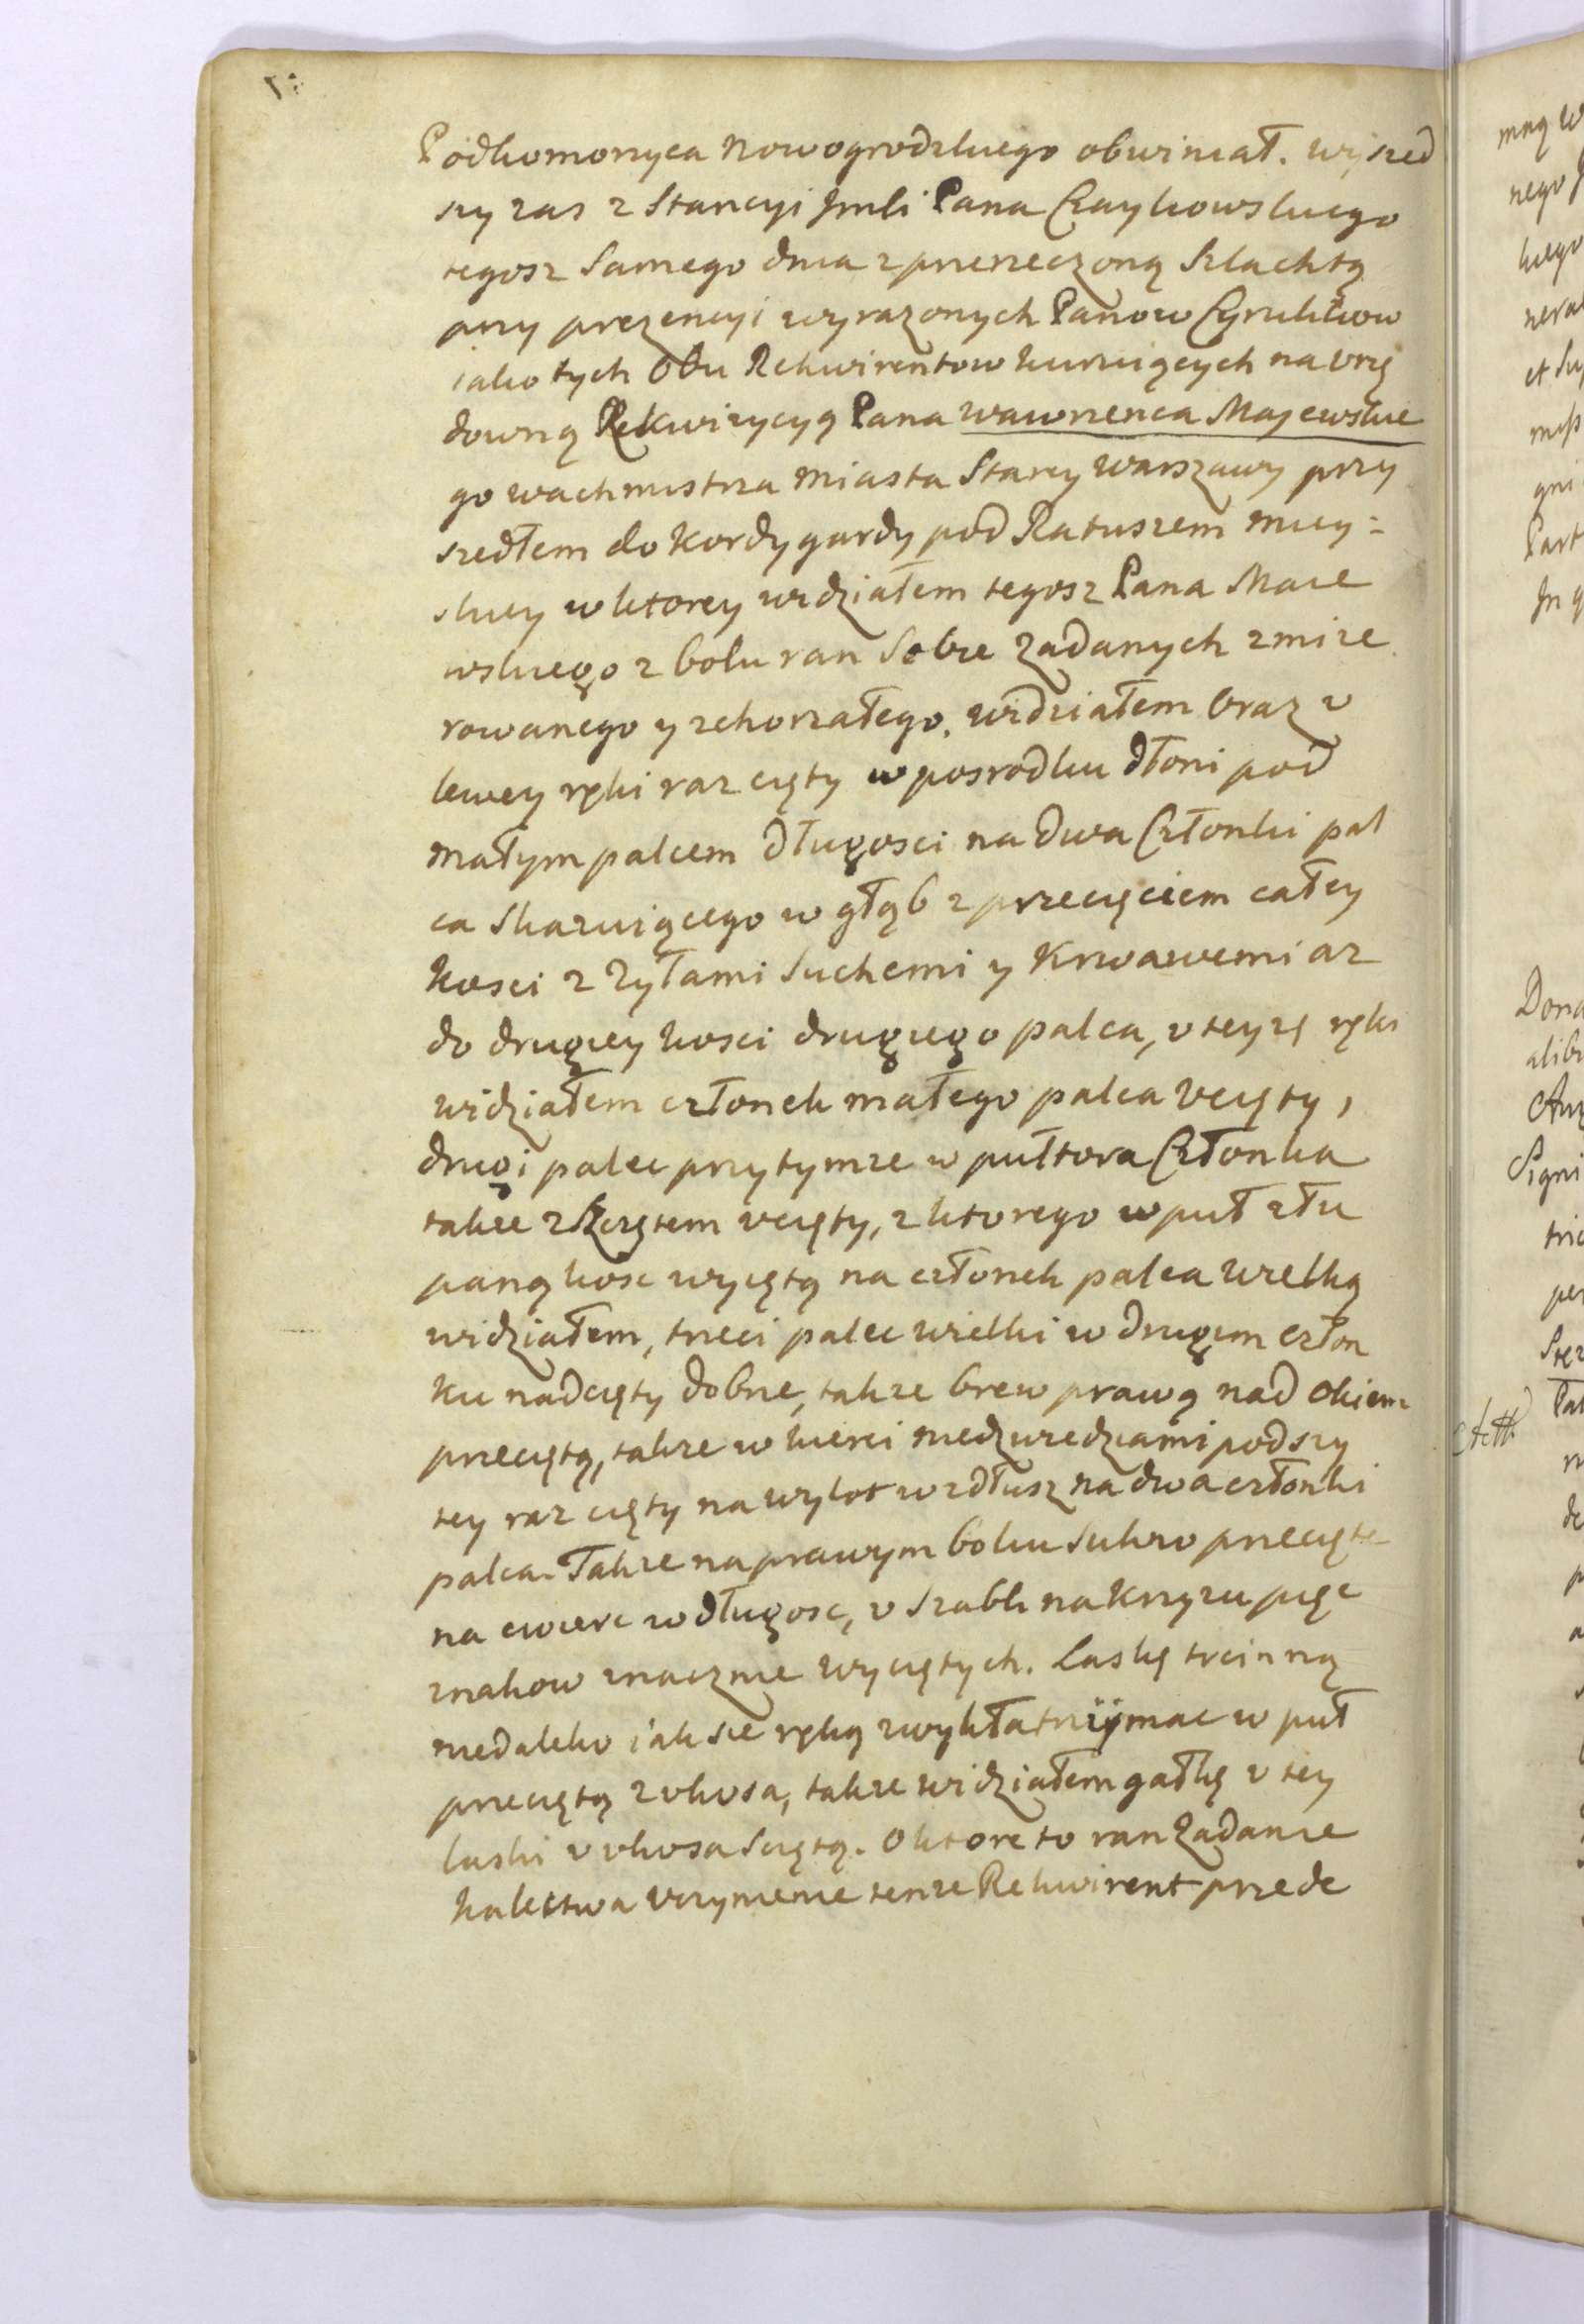 Podkomorzyca nowogrodzkiego obwiniał. wyszed
szy zas z Stancyi Jmści Pana Czaykowskiego
tegosz Samego dnia z przerzeczoną Szlachtą
przy prezencyi wyrazonych Panow Cyrulikow
iako tych Obu Rekwirentow kuruiących na vrzę
downą Rekwizycyą Pana Wawrzenca Majewskie
go wachmistrza Miasta Starey Warszawy przy
szedłem do Kordygardy pod Ratuszem miey:
skiey w ktorey widziałem tegosz Pana Maie
wskiego z bolu ran Sobie zadanych zmize
rowanego y zchorzałego. widziałem Oraz v
lewey ręki raz cięty w posrodku dłoni pod
małym palcem długosci na dwa Członki pal
ca Skazuiącego w głąb z przecięciem całey
kosci z Zyłami Suchemi y Krwawemi az
do drugiey kosci drugiego palca, v teyze ręki
widziałem członek małego palca vcięty,
drugi palec przytymze w pułtora Członka
takze z Szczętem vcięty, z ktorego w puł złu
paną kosc wyciętą na członek palca wielką
widziałem, trzeci palec wielki w drugim człon
ku nadcięty dobrze, takze brew prawą nad okiem
przeciętą, takze w kierei niedzwiedziami podszy
tey raz cięty na wylot wzdłusz na dwa członki
palca. Takze na prawym boku Sukno przecięte
na cwierc w długosc, v Szabli na Krzyzu pięc
znakow znacznie wyciętych. Laskę trcinną
niedaleko iak sie ręką zwykła trzymac w puł
przeciętą z vkosa, takze widziałem gałkę v tey
laski v vkosa Sciętą. O ktore to ran Zadanie
kalectwa vczynienie tenze Rekwirent przede